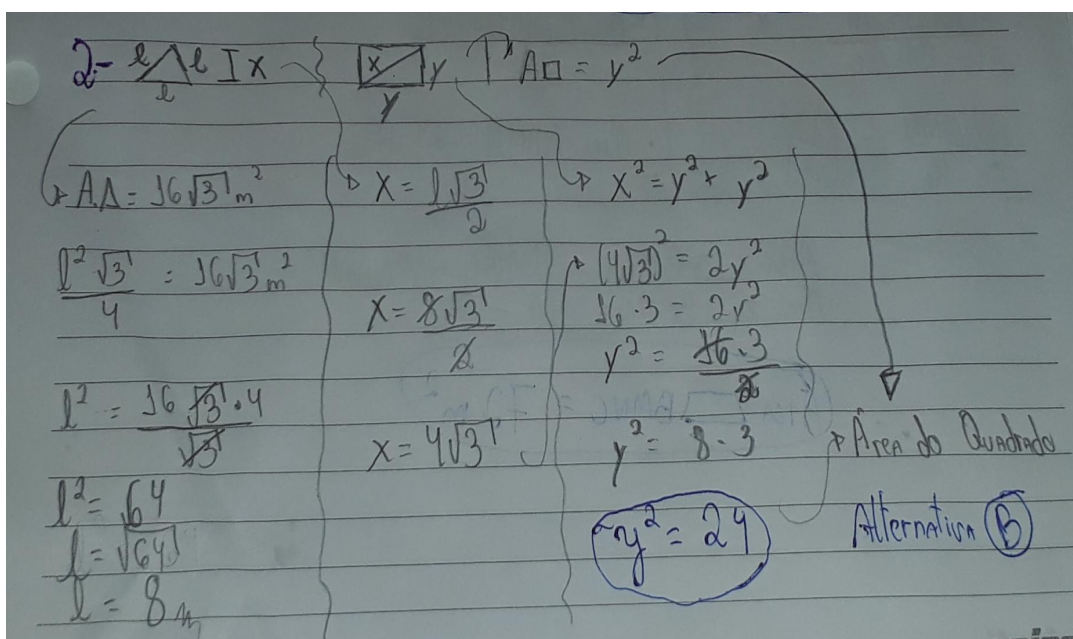 2- l l I x x y A□ = y²
l y
A.Δ = 16√3 m²
l²√3 / 4 = 16√3 m²
l² = 16√3 · 4 / √3
l² = 64
l = √64
l = 8 m
x = l√3 / 2
x = 8√3 / 2
x = 4√3
x² = y² + y²
(4√3)² = 2y²
16 · 3 = 2y²
y² = 16 · 3 / 2
y² = 8 · 3
y² = 24
Área do Quadrado
Alternativa B